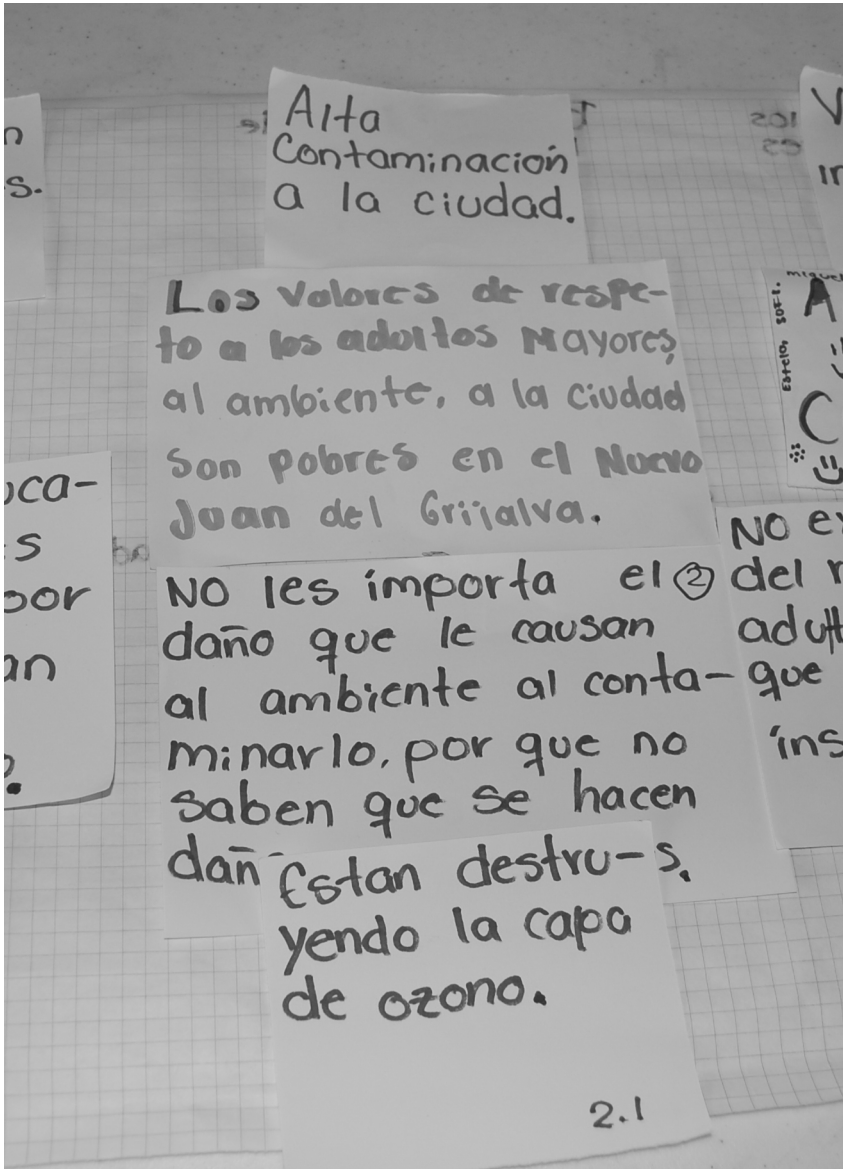 Alta
Contaminación
a la ciudad.
Los Valores de respe-
to a los adultos Mayores,
al ambiente, a la ciudad
son pobres en el Nuevo
Juan del Grijalva.
NO les importa el ②
daño que le causan
al ambiente al conta-
minarlo, por que no
saben que se hacen
dañ s.
Estan destru-
yendo la capa
de ozono.
2.1
n
s.
oca-
s
por
an
o.
V
in
miguel
Estela, sofi.
A
C
NO ex
del r
adult
que
ins